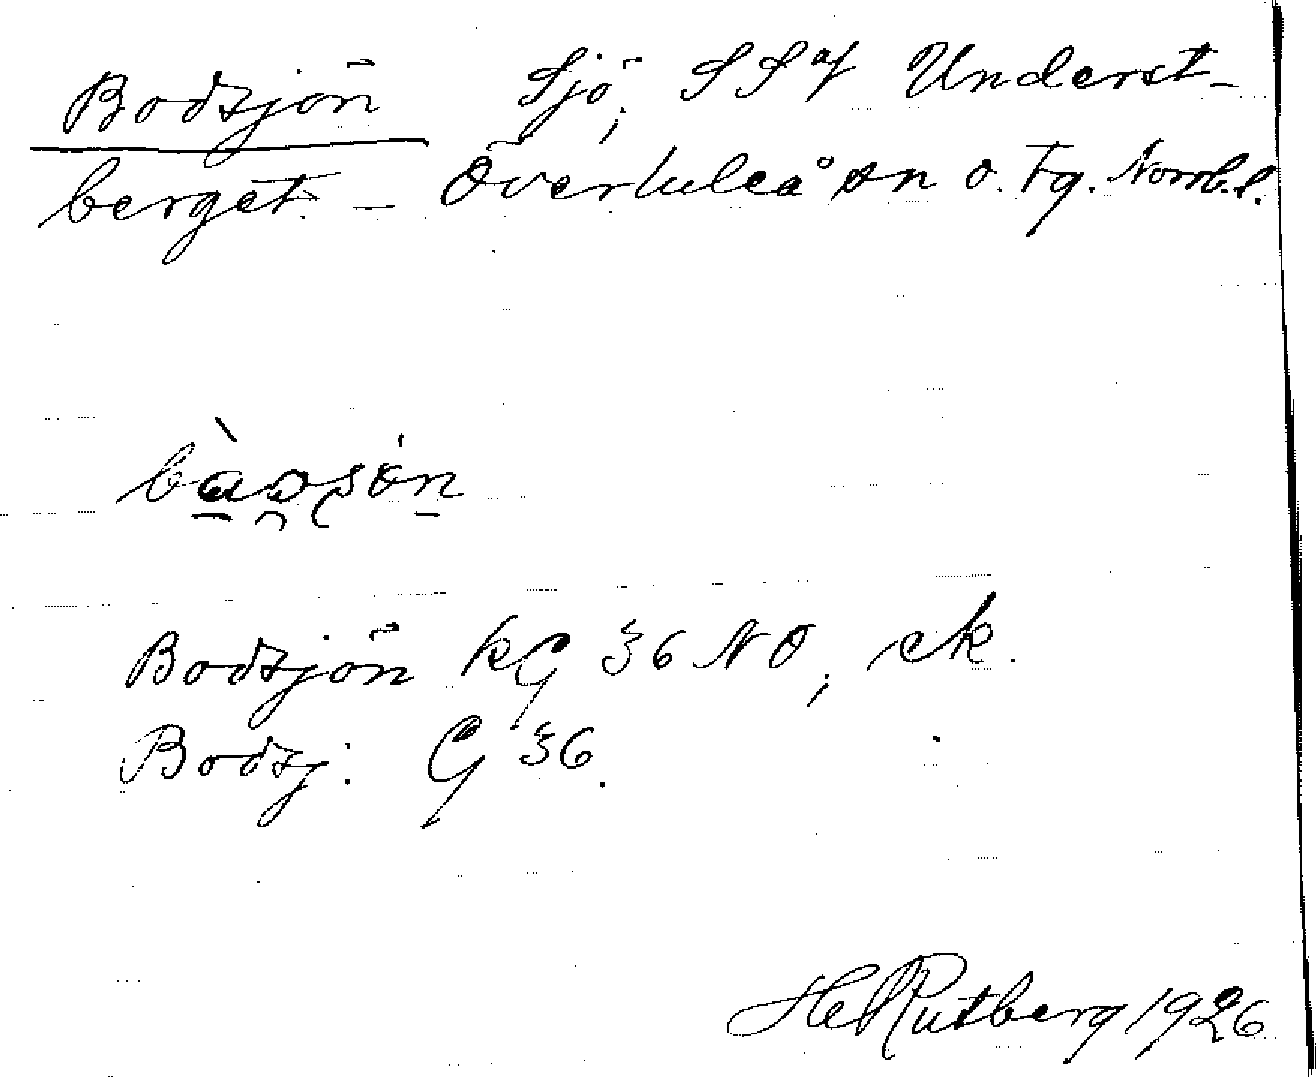 Bodsjön Sjö, S S of Underst-
berget. – Överluleå sn o. tg. Norrb.l.
bàọsón
Bodsjön kG 36 NO, ek.
Bodsj: G 36.
HeRutberg 1926